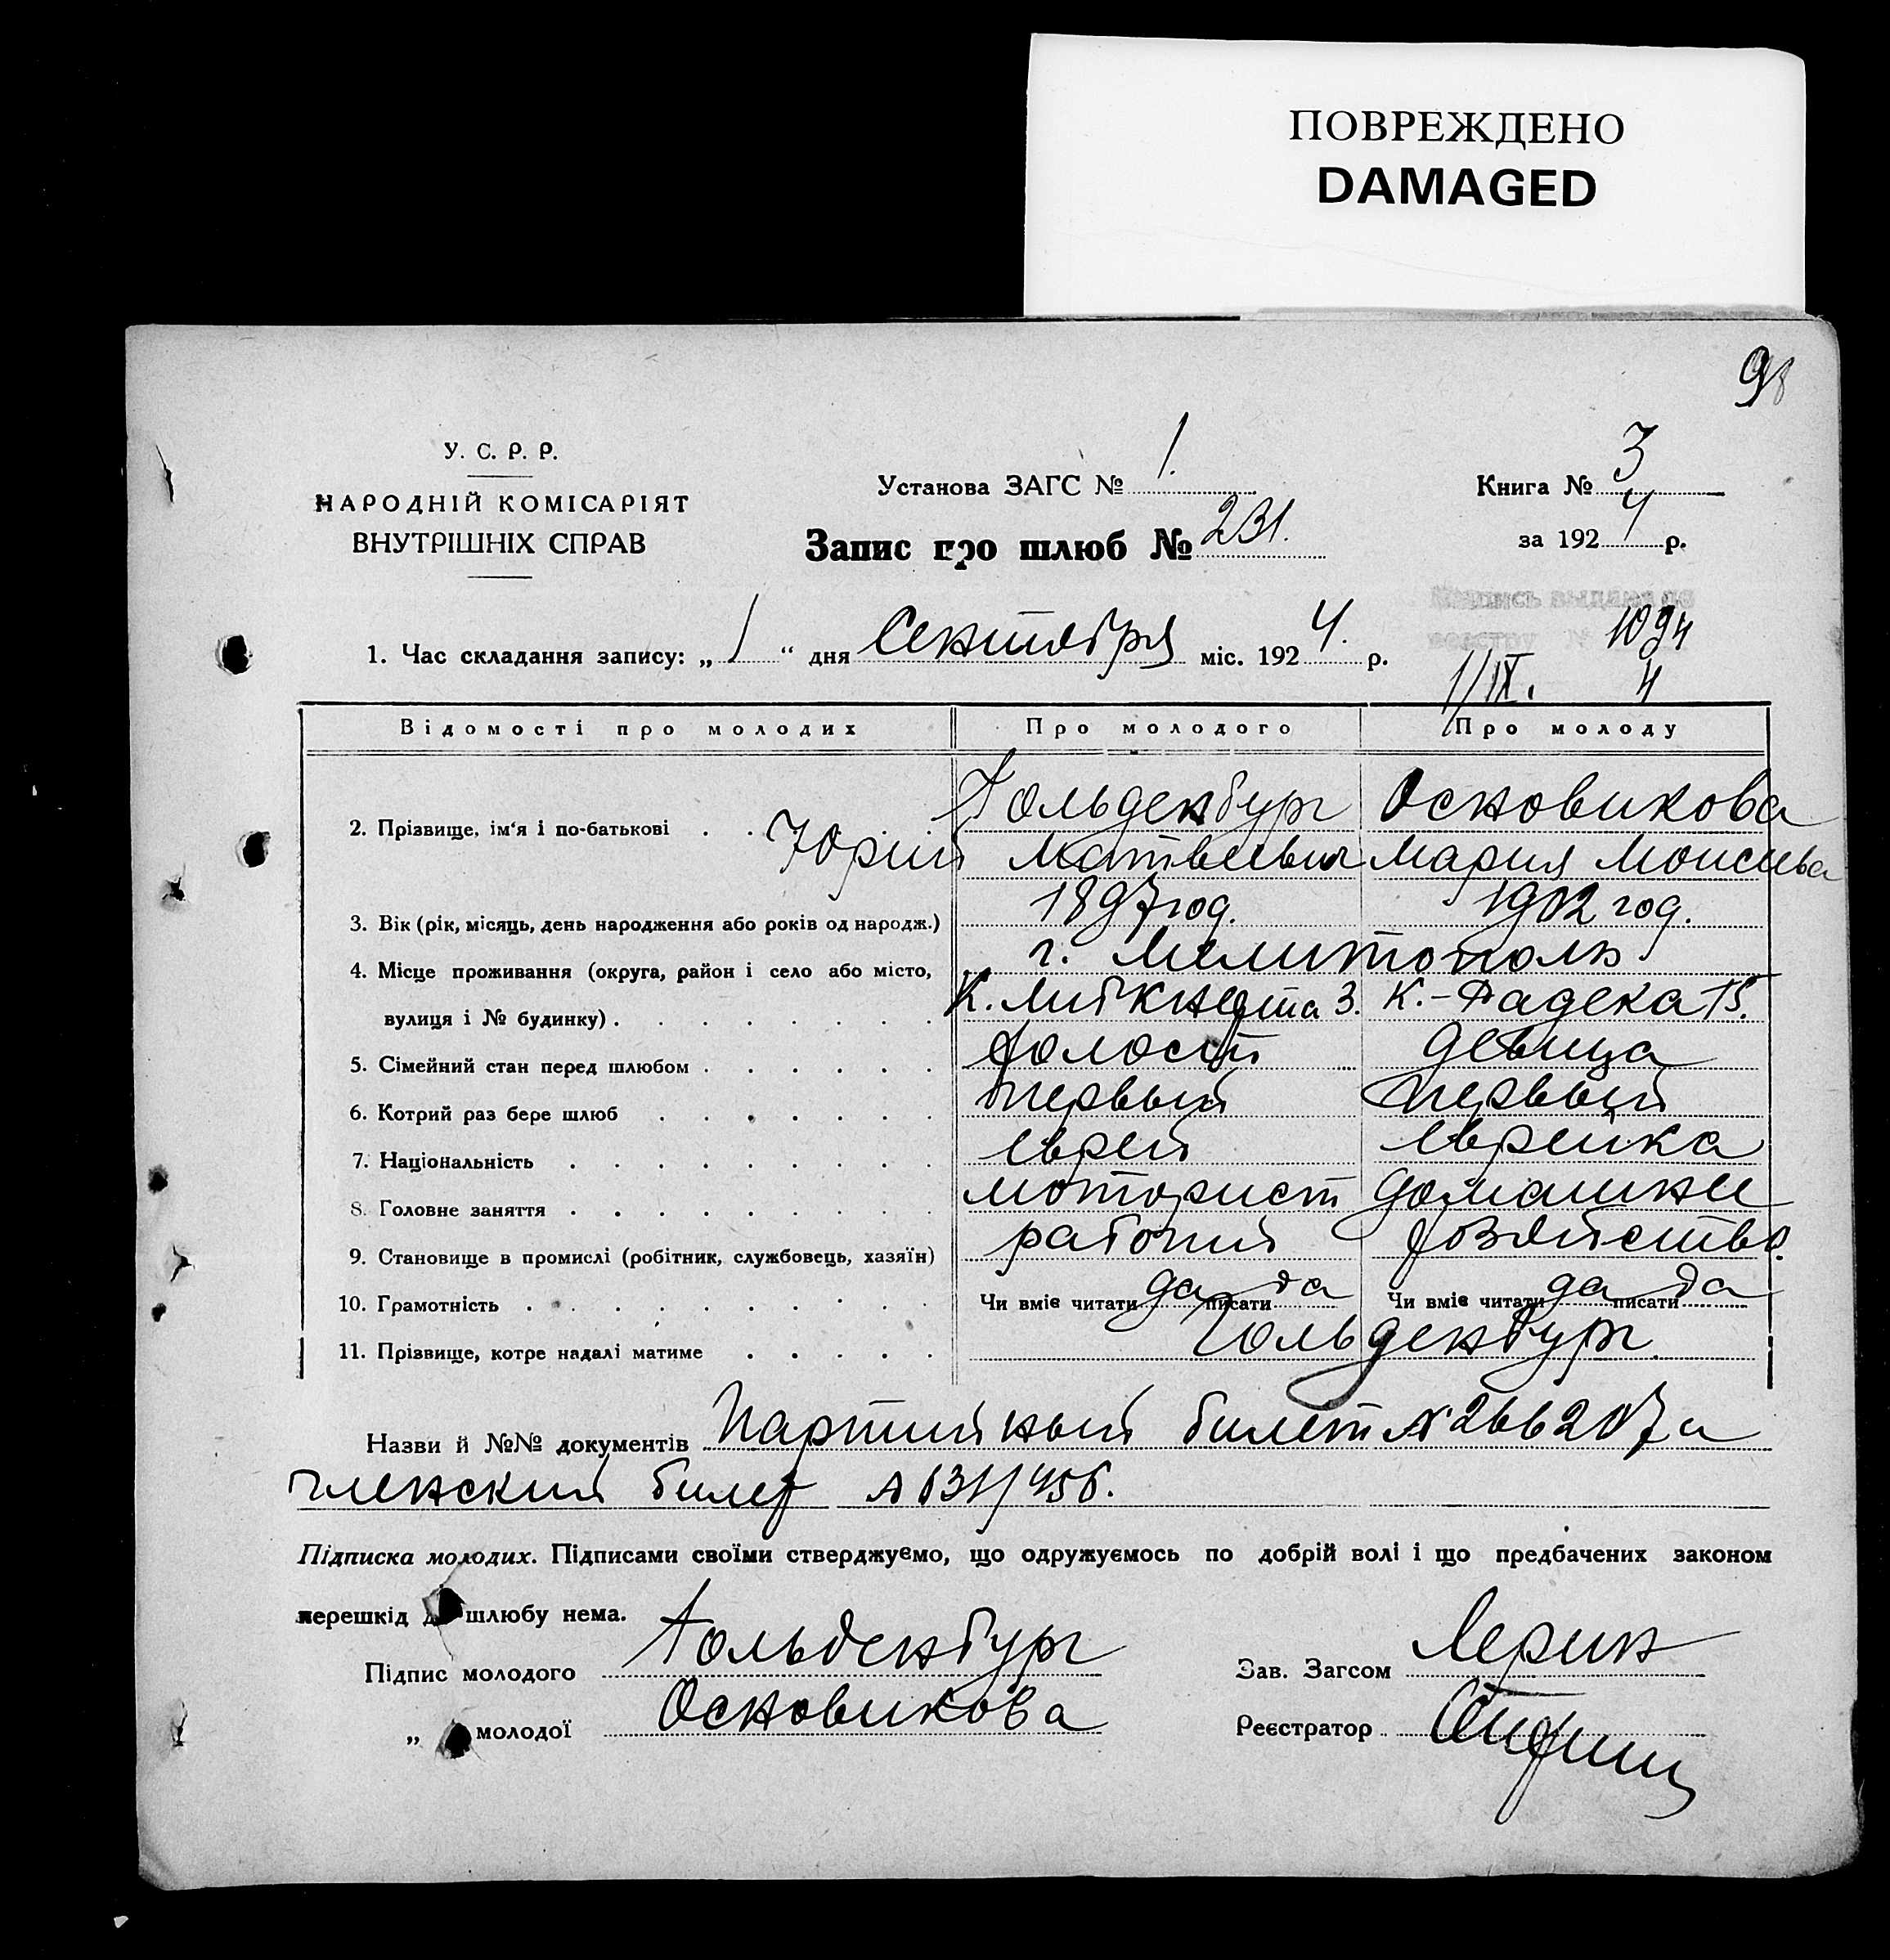 ПОВРЕЖДЕНО
DAMAGED
98
У. С. Р. Р.
НАРОДНІЙ КОМІСАРІЯТ
ВНУТРІШНІХ СПРАВ
Установа ЗАГС № 1.
Запис про шлюб № 231.
Книга № 3
за 1924 р.
выдана
1094
1/IX. 4
1. Час складання запису: „ 1 “ дня Сентября міс. 1924. р.
Відомості про молодих Про молодого Про молоду
Гольденбург Основикова
2. Прізвище, ім'я і по-батькові Юрий Матвеевич Мария Моисеева
3. Вік (рік, місяць, день народження або років од народж.) 1897 год. 1902 год.
4. Місце проживання (округа, район і село або місто, г. Мелитополь
вулиця і № будинку) К. Либкнехта 3. К.-Радека 15.
5. Сімейний стан перед шлюбом холост девица
6. Котрий раз бере шлюб первый первый
7. Національність еврей еврейка
8. Головне заняття моторист домашнее
9. Становище в промислі (робітник, службовець, хазяїн) рабочий хозяйство.
10. Грамотність Чи вміє читати да писати да Чи вміє читати да писати да
11. Прізвище, котре надалі матиме Гольденбург.
Назви й №№ документів Партийный билет № 266207 и
членский билет № 631/456.
Підписка молодих. Підписами своїми стверджуємо, що одружуємось по добрій волі і що предбачених законом
перешкід до шлюбу нема.
Підпис молодого Гольденбург Зав. Загсом Лерин
„ молодої Основикова Реєстратор